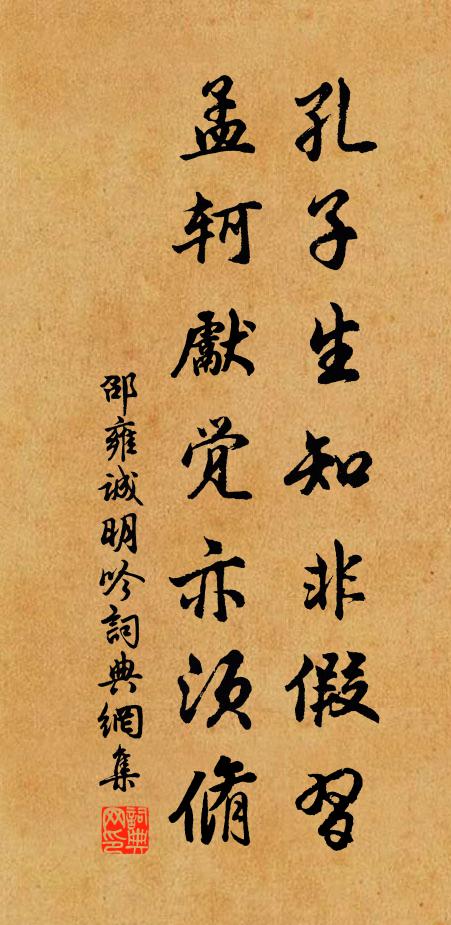 孔子生知非假习
孟轲獻觉亦须脩
邵雍诚明吟詞典網集
詞典网印